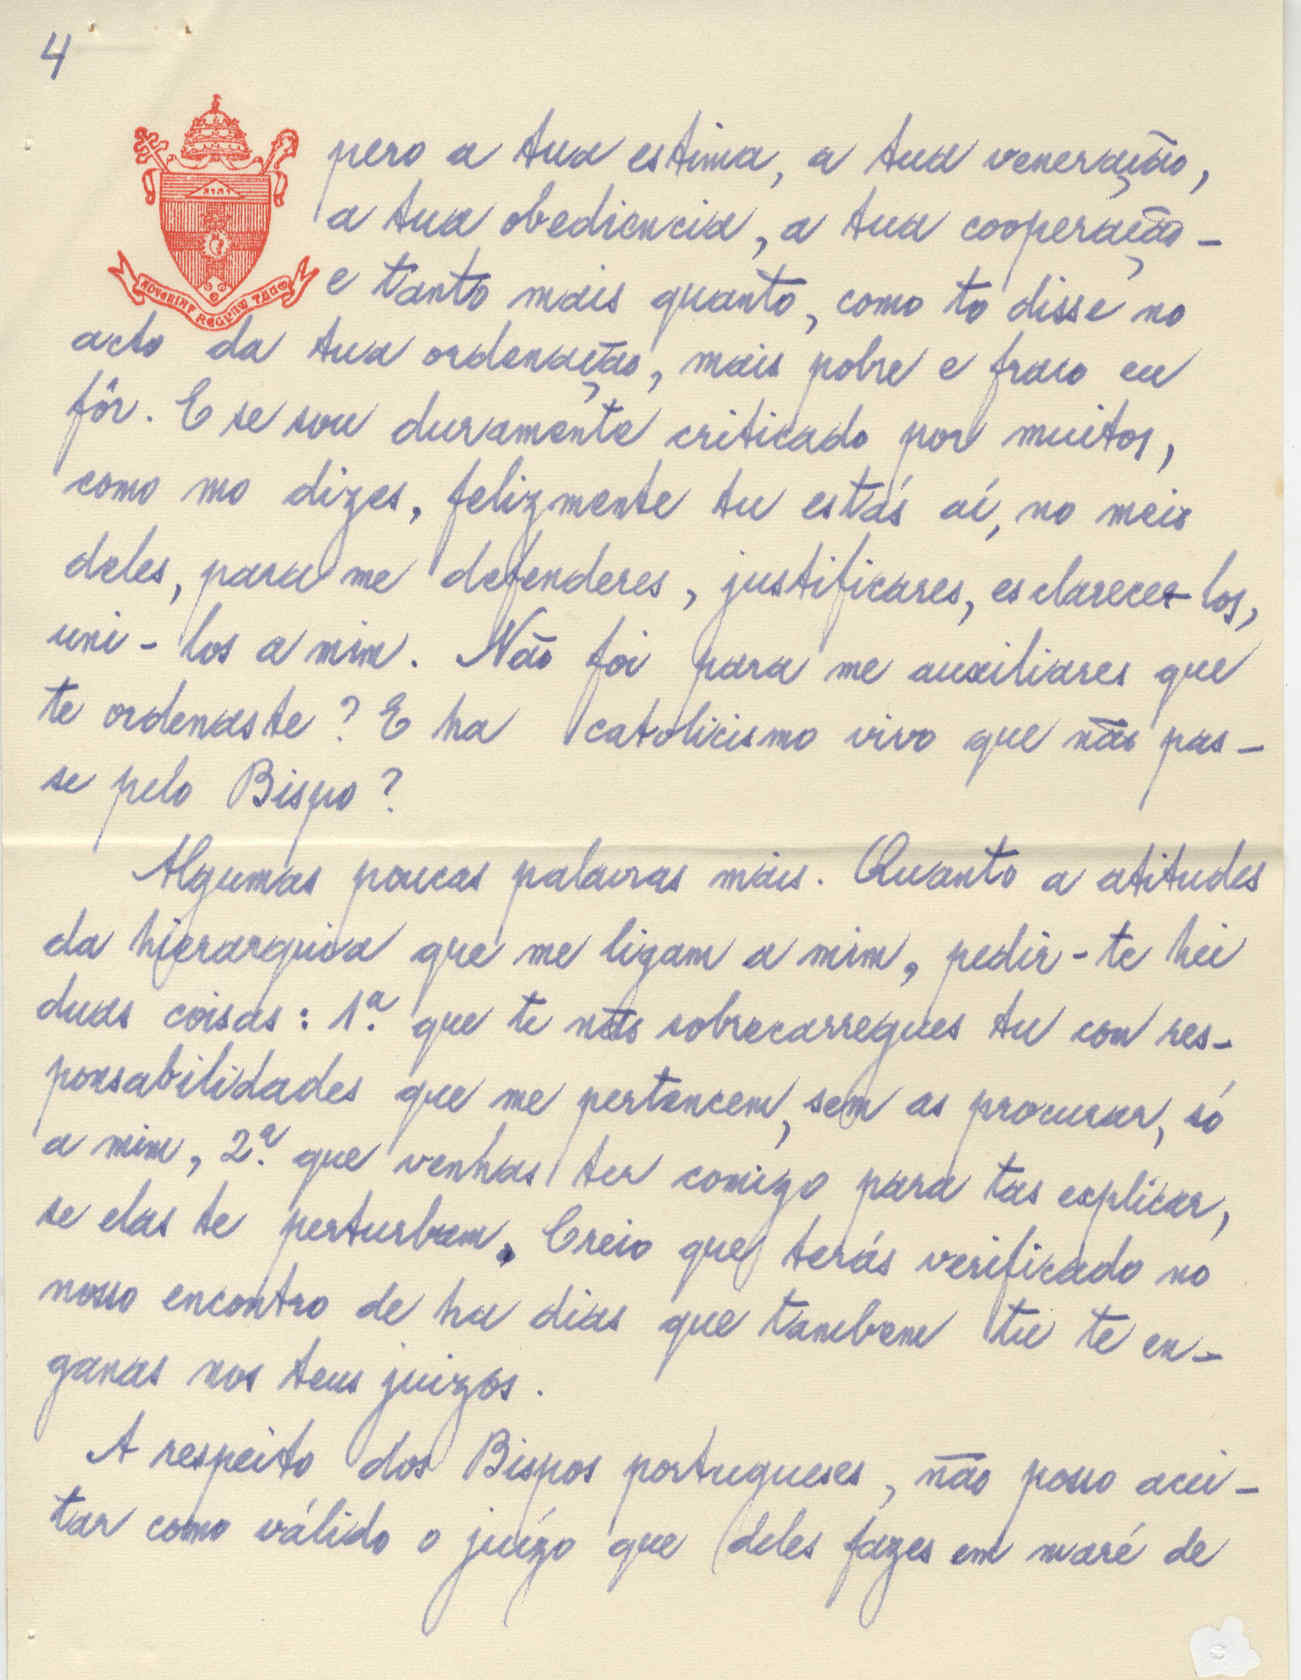 4
ADVENIAT REGNUM TUUM
pero a tua estima, a tua veneração,
a tua obediencia, a tua cooperação –
e tanto mais quanto, como to disse no
acto da tua ordenação, mais pobre e fraco eu
fôr. E se sou duramente criticado por muitos,
como mo dizes, felizmente tu estás aí, no meio
deles, para me defenderes, justificares, esclarecer-los,
uni-los a mim. Não foi para me auxiliares que
te ordenaste? E ha catolicismo vivo que não pas-
se pelo Bispo?
Algumas poucas palavras mais. Quanto a atitudes
da hierarquia que me ligam a mim, pedir-te hei
duas coisas: 1.ª que te não sobrecarregues tu com res-
ponsabilidades que me pertencem, sem as procurar, só
a mim, 2.ª que venhas ter comigo para tas explicar,
se elas te perturbam. Creio que terás verificado no
nosso encontro de ha dias que tambem tu te en-
ganas nos teus juizos.
A respeito dos Bispos portugueses, não posso acei-
tar como válido o juízo que deles fazes em maré de